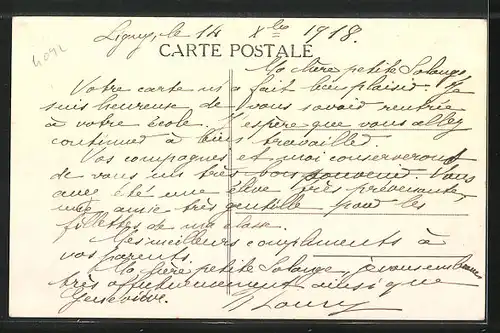 4092
Ligny, le 14 Xbre 1918.
CARTE POSTALE
Ma chère petite Solange,
Votre carte m'a fait bien plaisir. Je
suis heureuse de vous savoir rentrée
à votre école. J'espère que vous allez
continuer à bien travailler.
Vos compagnes et moi conserverons
de vous un très bon souvenir. Vous
avez été une élève très prévenante,
une amie très gentille pour les
fillettes de ma classe.
Mes meilleurs compliments à
vos parents.
Ma chère petite Solange, je vous embrasse
très affectueusement ainsi que
Geneviève.